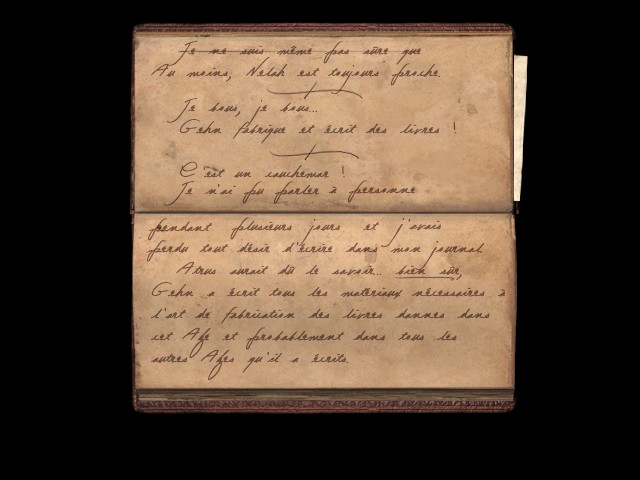 Je ne suis même pas sûre que
Au moins, Nelah est toujours proche.
Je bous, je bous...
Gehn fabrique et écrit des livres !
C'est un cauchemar !
Je n'ai pu parler à personne
pendant plusieurs jours et j'avais
perdu tout désir d'écrire dans mon journal.
Atrus aurait dû le savoir... bien sûr,
Gehn a écrit tous les matériaux nécessaires à
l'art de fabrication des livres dannes dans
cet Age et probablement dans tous les
autres Ages qu'il a écrits.